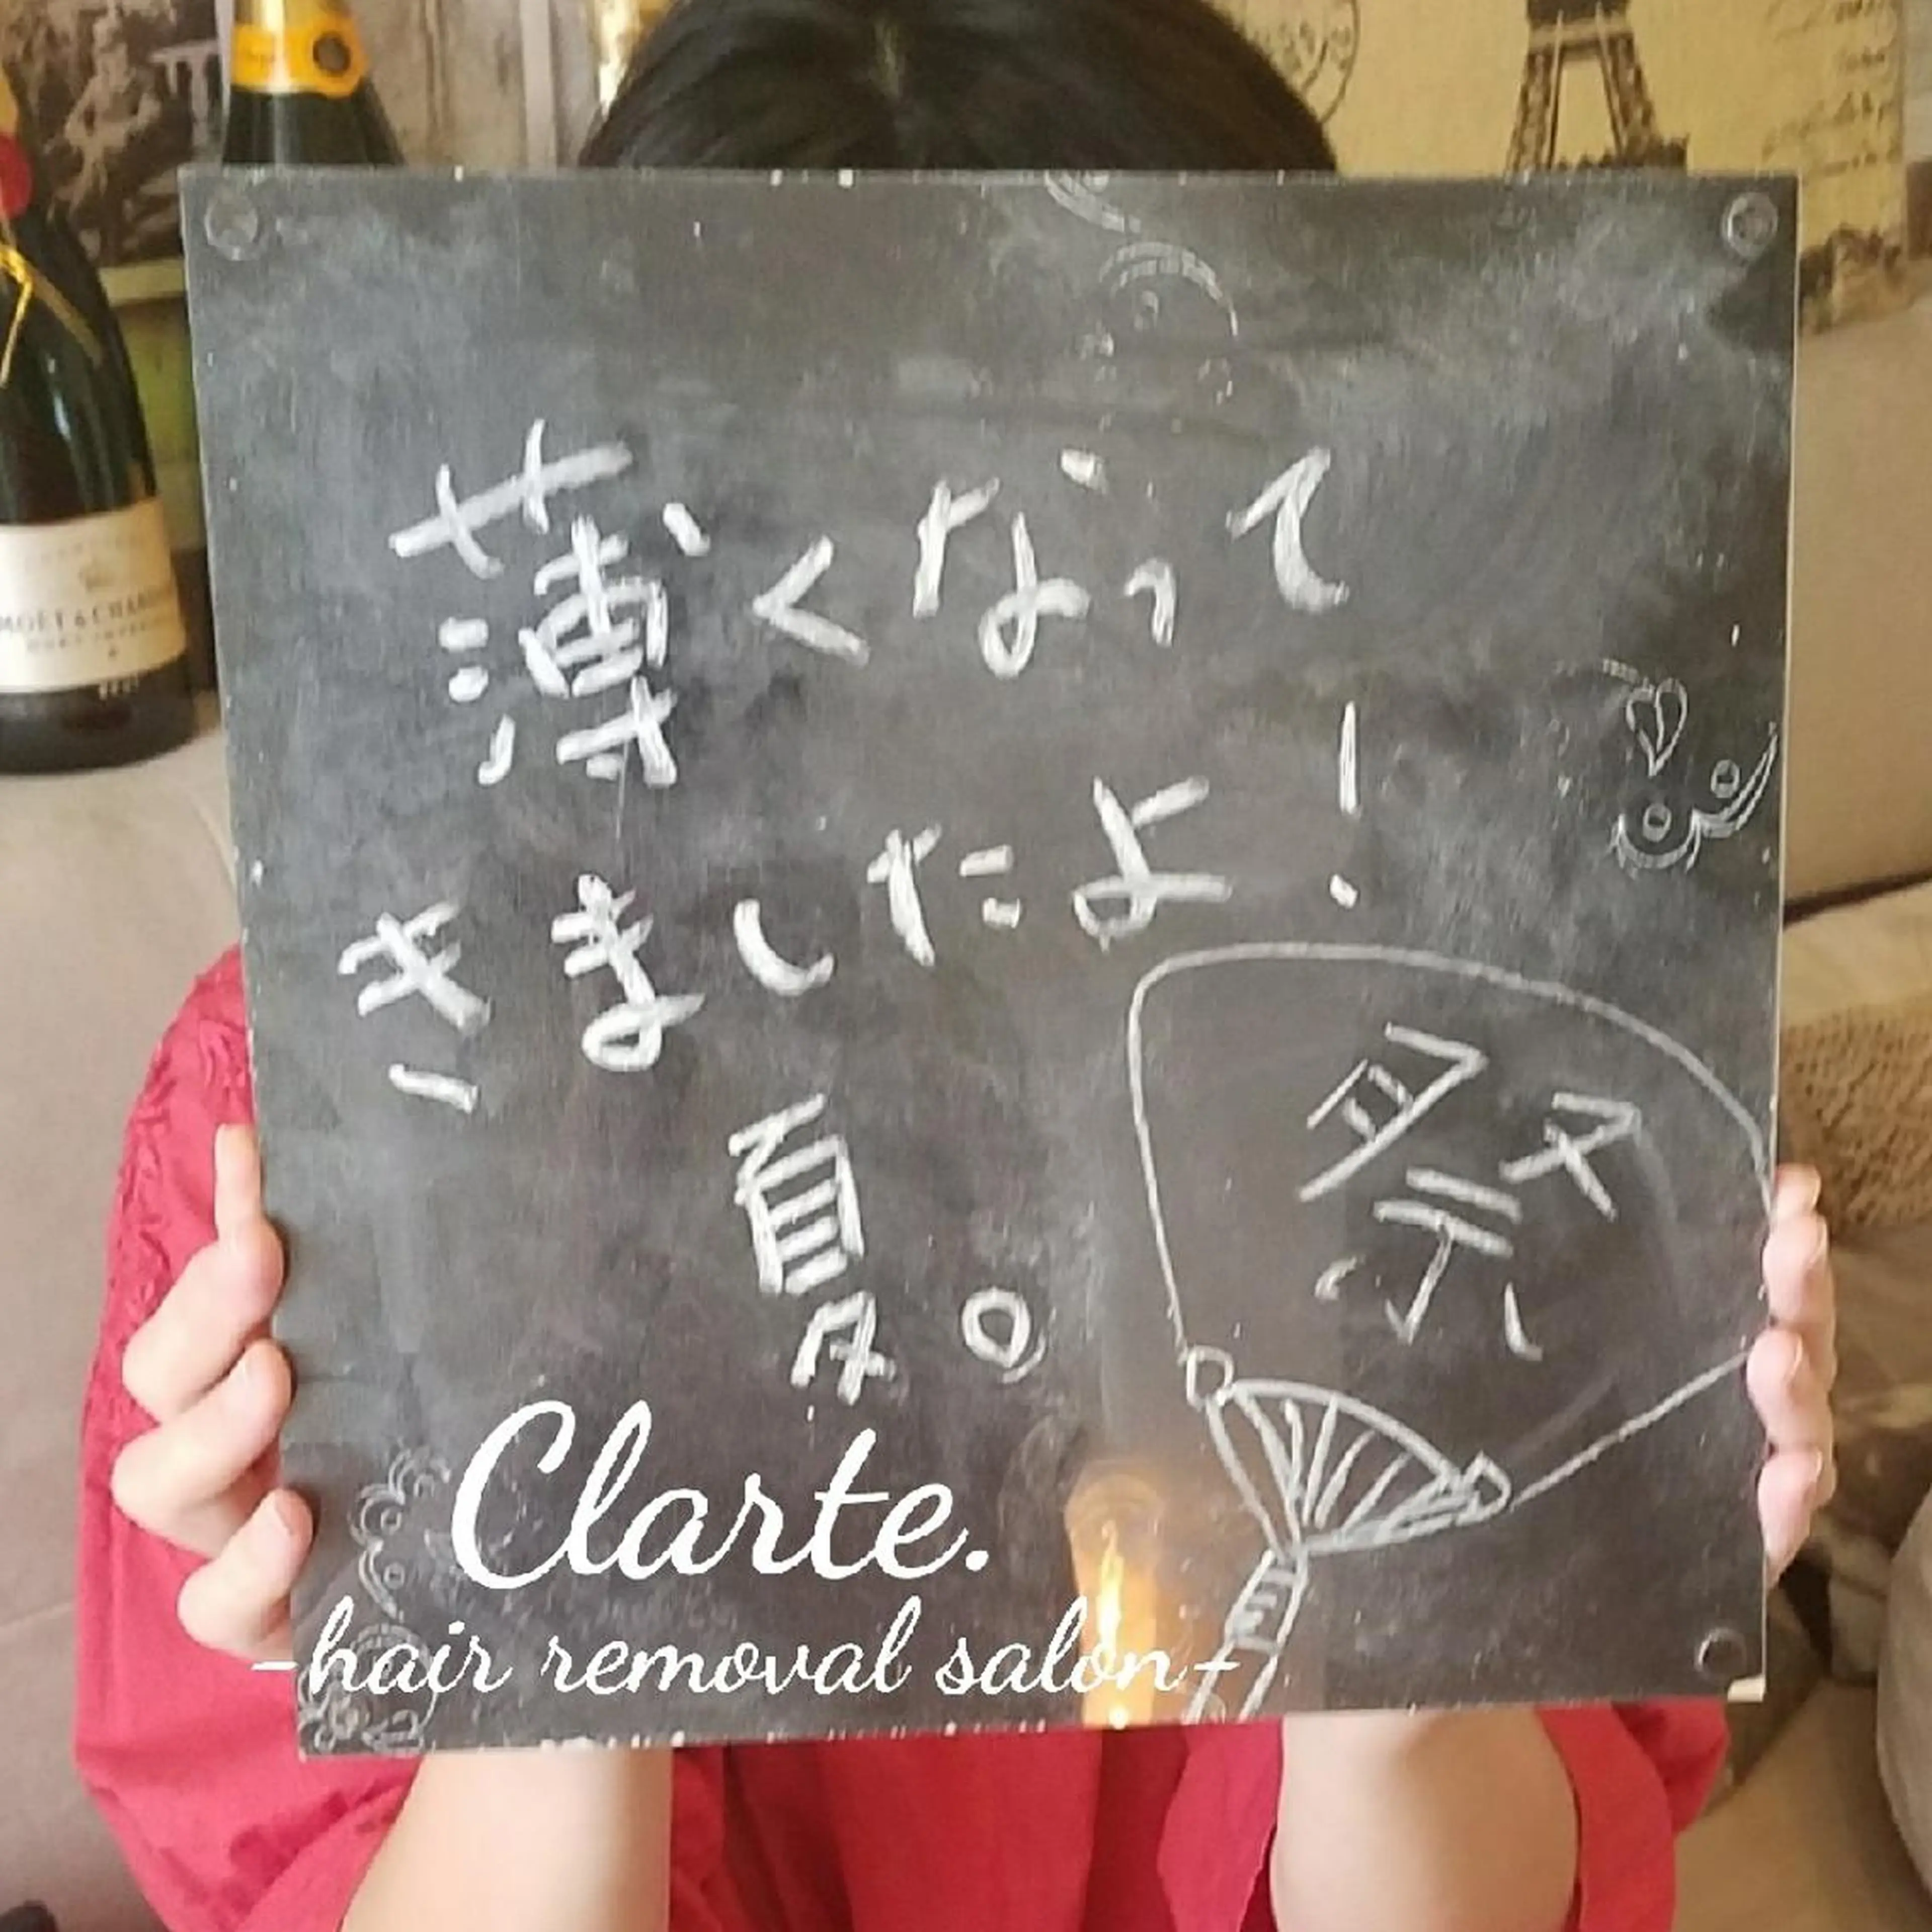 薄くなって
きましたよ！
夏。
祭
Clarte.
-hair removal salon-
MOËT & CHANDON